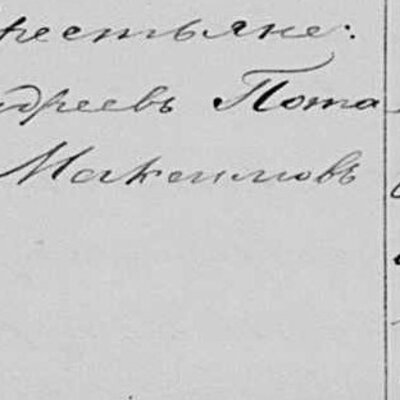 рестьяне:
ндреевъ Пота
Максимовъ